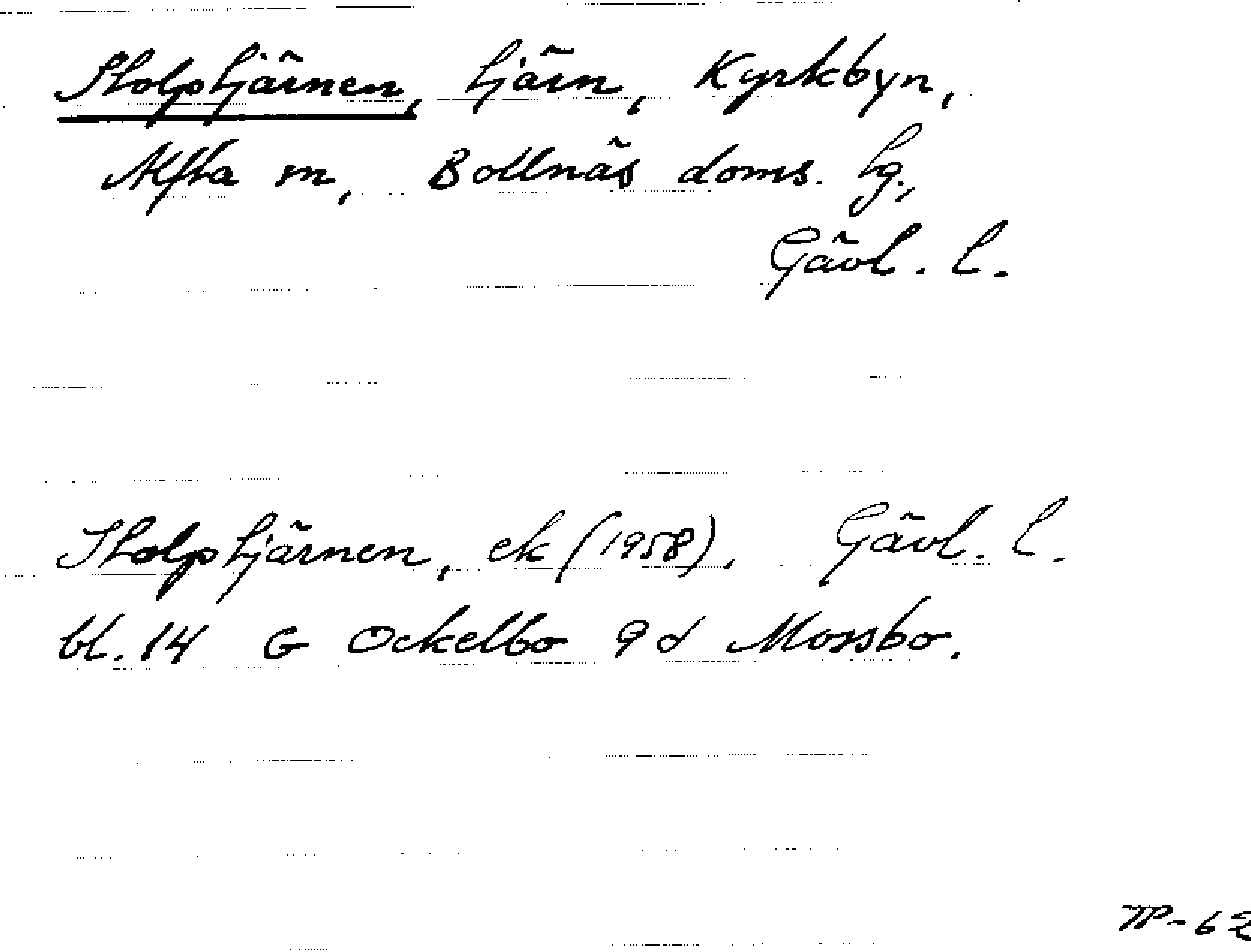 Stolptjärnen, tjärn, Kyrkbyn,
Alfta sn, Bollnäs doms. hg.,
Gävl. l.
Stolptjärnen, ek (1958), Gävl. l.
bl. 14 G Ockelbo 9d Mossbo.
TP-62